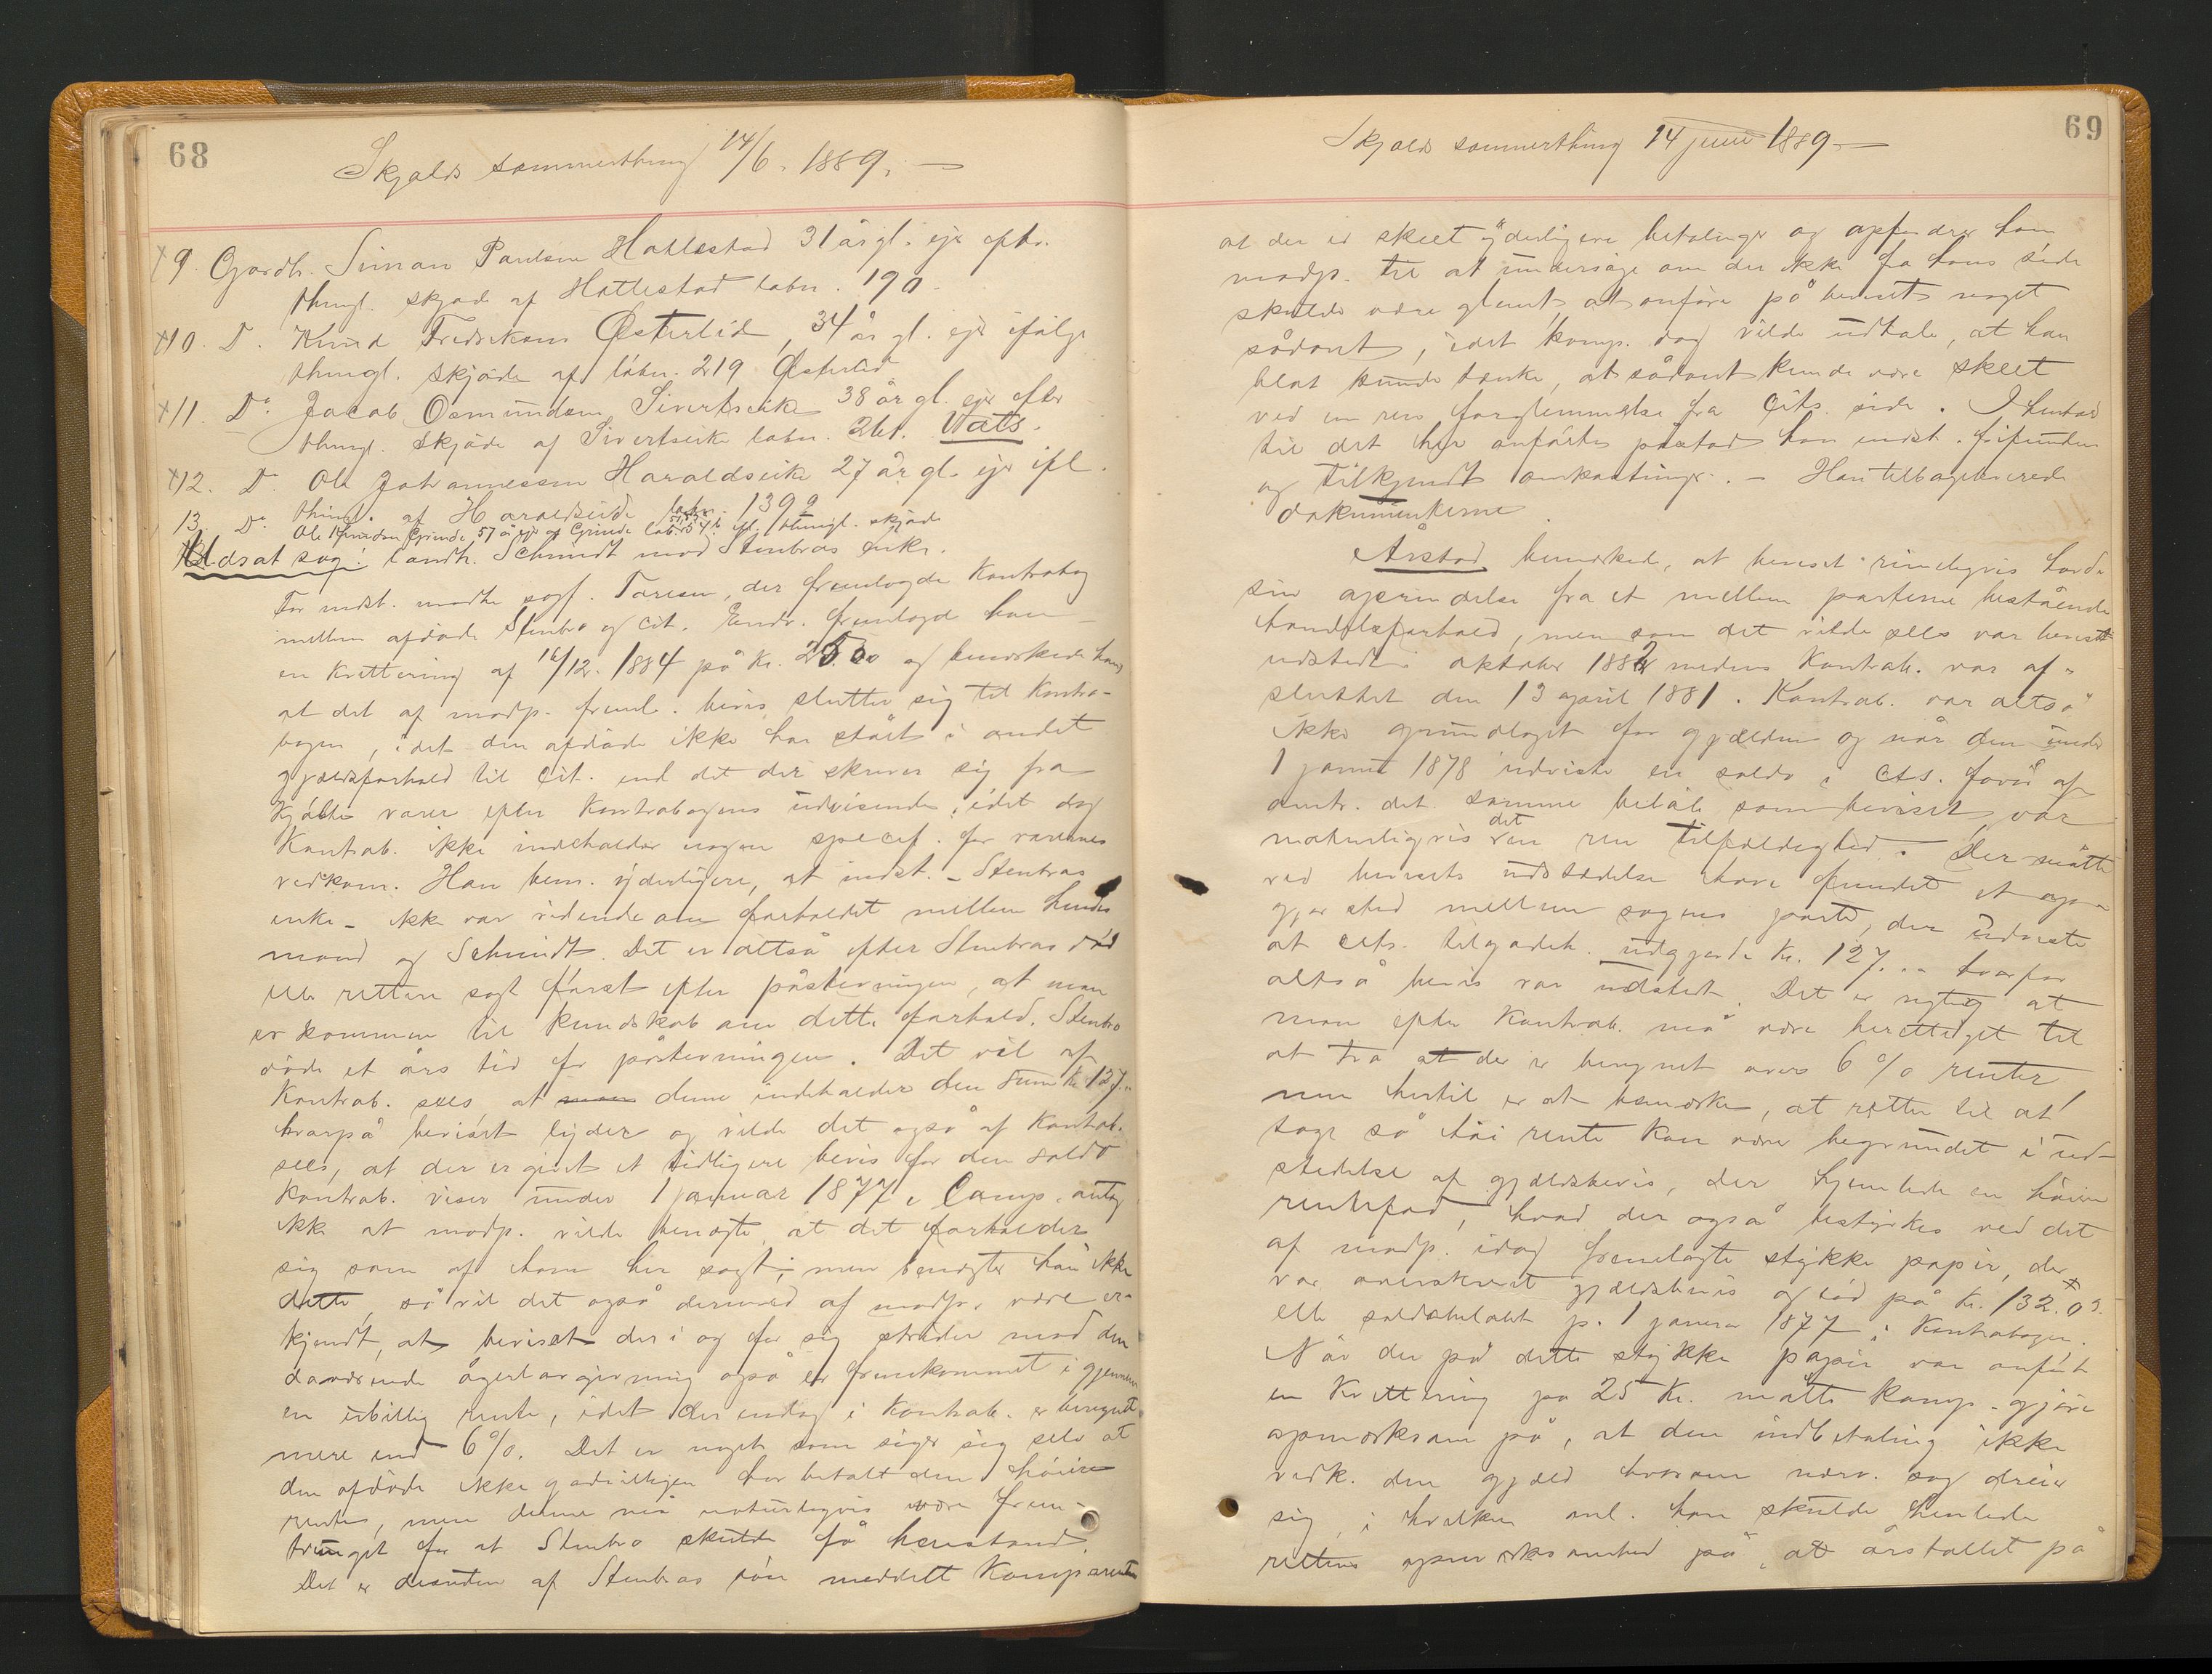 68
Skjolds sommerthing 14/6. 1889. —
9. Gårdb. Simon Paulsen Hallestad 31 år gl. ejer efter
thingl. skjøde af Hattestad labn. 190.
10. Do. Knud Fredriksen Østerlid, 34 år gl. ejer ifølge
thingl. skjøde af løbn. 219 Østerlid
11. Do. Jacob Osmundsen Sivertseike 38 år gl. ejer efter
thingl. skjøde af Sivertseike labn. 261. Vats.
12. Do. Ole Johannessen Haraldseike 27 år gl. ejer ifl.
thingl. af Haraldseide labn. 139 a
13. Do. Ole Knudsen Grinde, 57 år ejer af Grinde lab. ifl. thingl. skjøde
Udsat sag: landh. Schmidt mod Stenbros enke.
For indst. mødte sagf. Toresen, der fremlagde Kontrabog
mellem afdøde Stenbro og Cit. Endv. fremlagde han
en kvittering af 16/12. 1884 på kr. 25.00 og bemærkede han,
at det af modp. freml. bevis slutter sig til Kontra-
bogen, idet den afdøde ikke har stået i andet
gjældsforhold til Cit. end det der skriver sig fra
kjøbte varer efter Kontrabogens udvisende, idet dog
Kontrab. ikke indeholder nogen specif. for varernes
vedkom. Han bem. yderligere, at indst. - Stenbros
enke - ikke var vidende om forholdet mellem hendes
mand og Schmidt. Det er altså efter Stenbros død
eller rettere sagt først efter påstevningen, at man
er kommen til kundskab om dette forhold. Stenbro
døde et års tid før påstevningen. Det vil af
Kontrab. sees at denne indeholder den sum kr. 127.
hvorpå beviset lyder og vilde det også af Kontrab.
sees, at der er givet et tidligere bevis for den saldo
Kontrab. viser under 1 januar 1877. Comp. antog
ikke at modp. vilde benægte, at det forholder
sig som af ham her sagt; men benægter han ikke
dette, så vil det også dermed af modp. være er-
kjendt, at beviset der i og for sig strider mod den
daværende ågerlovgivning også er fremkommet i gjennem
en ubillig rente, idet der endog i Kontrab. er beregnet
mere end 6 %. Det er noget som siger sig selv at
den afdøde ikke godvilligen har betalt den høiere
rente, men denne må naturligvis være frem-
tvunget for at Stenbro skulde få henstand.
Det er desuden af Stenbros søn meddelt Komparenten
69
Skjolds sommerthing 14 juni 1889 —
at der er skeet yderligere betalinger og opfordrer han
modp. til at undersøge om der ikke fra hans side
skulde være glemt at anføre på beviset noget
sådant, idet komp. dog vilde udtale, at han
blot kunde tænke, at sådant kunde være skeet
ved en ren forglemmelse fra Cits. side. I henhold
til det her anførte påstod han indst. frifunden
og tilkjendt omkostninger. - Han tilbageleverede
dokumenterne.
Årstad bemærkede, at beviset rimeligvis havde
sin oprindelse fra et mellem parterne bestående
handelsforhold, men som det vilde sees var beviset
udstedt i oktober 1882 medens Kontrab. var af-
sluttet den 13 april 1881. Kontrab. var altså
ikke grundlaget for gjælden og når den under
1 januar 1878 udviste en saldo i Cits. favør af
omtr. det samme beløb som beviset, var
naturligvis det en ren tilfældighed. Der måtte
ved bevisets udstædelse have fundet et op-
gjør sted mellem sagens parter, der udviste
at Cits. tilgodeh. udgjorde kr. 127... hvorfor
altså bevis var udstedt. Det er rigtig at
man efter Kontrab. må være berettiget til
at tro at der er beregnet over 6 % renter
men hertil er at bemærke, at retten til at
tage så høi rente kan være begrundet i ud-
stedelse af gjældsbevis, der hjemlede en høiere
rentefod, hvad der også bestyrkes ved det
af modp. idag fremlagte stykke papir, der
var overskrevet gjældsbevis og lød på kr. 132.03
elle saldobeløbet p. 1 januar 1877 i Kontrabogen.
Når der på dette stykke papir var anført
en kvittering på 25 kr. måtte komp. gjøre
opmærksom på, at den indbetaling ikke
vedk. den gjæld hvorom nærv. sag dreier
sig, i hvilken anl. han skulde henlede
rettens opmærksomhed på, at årstallet på